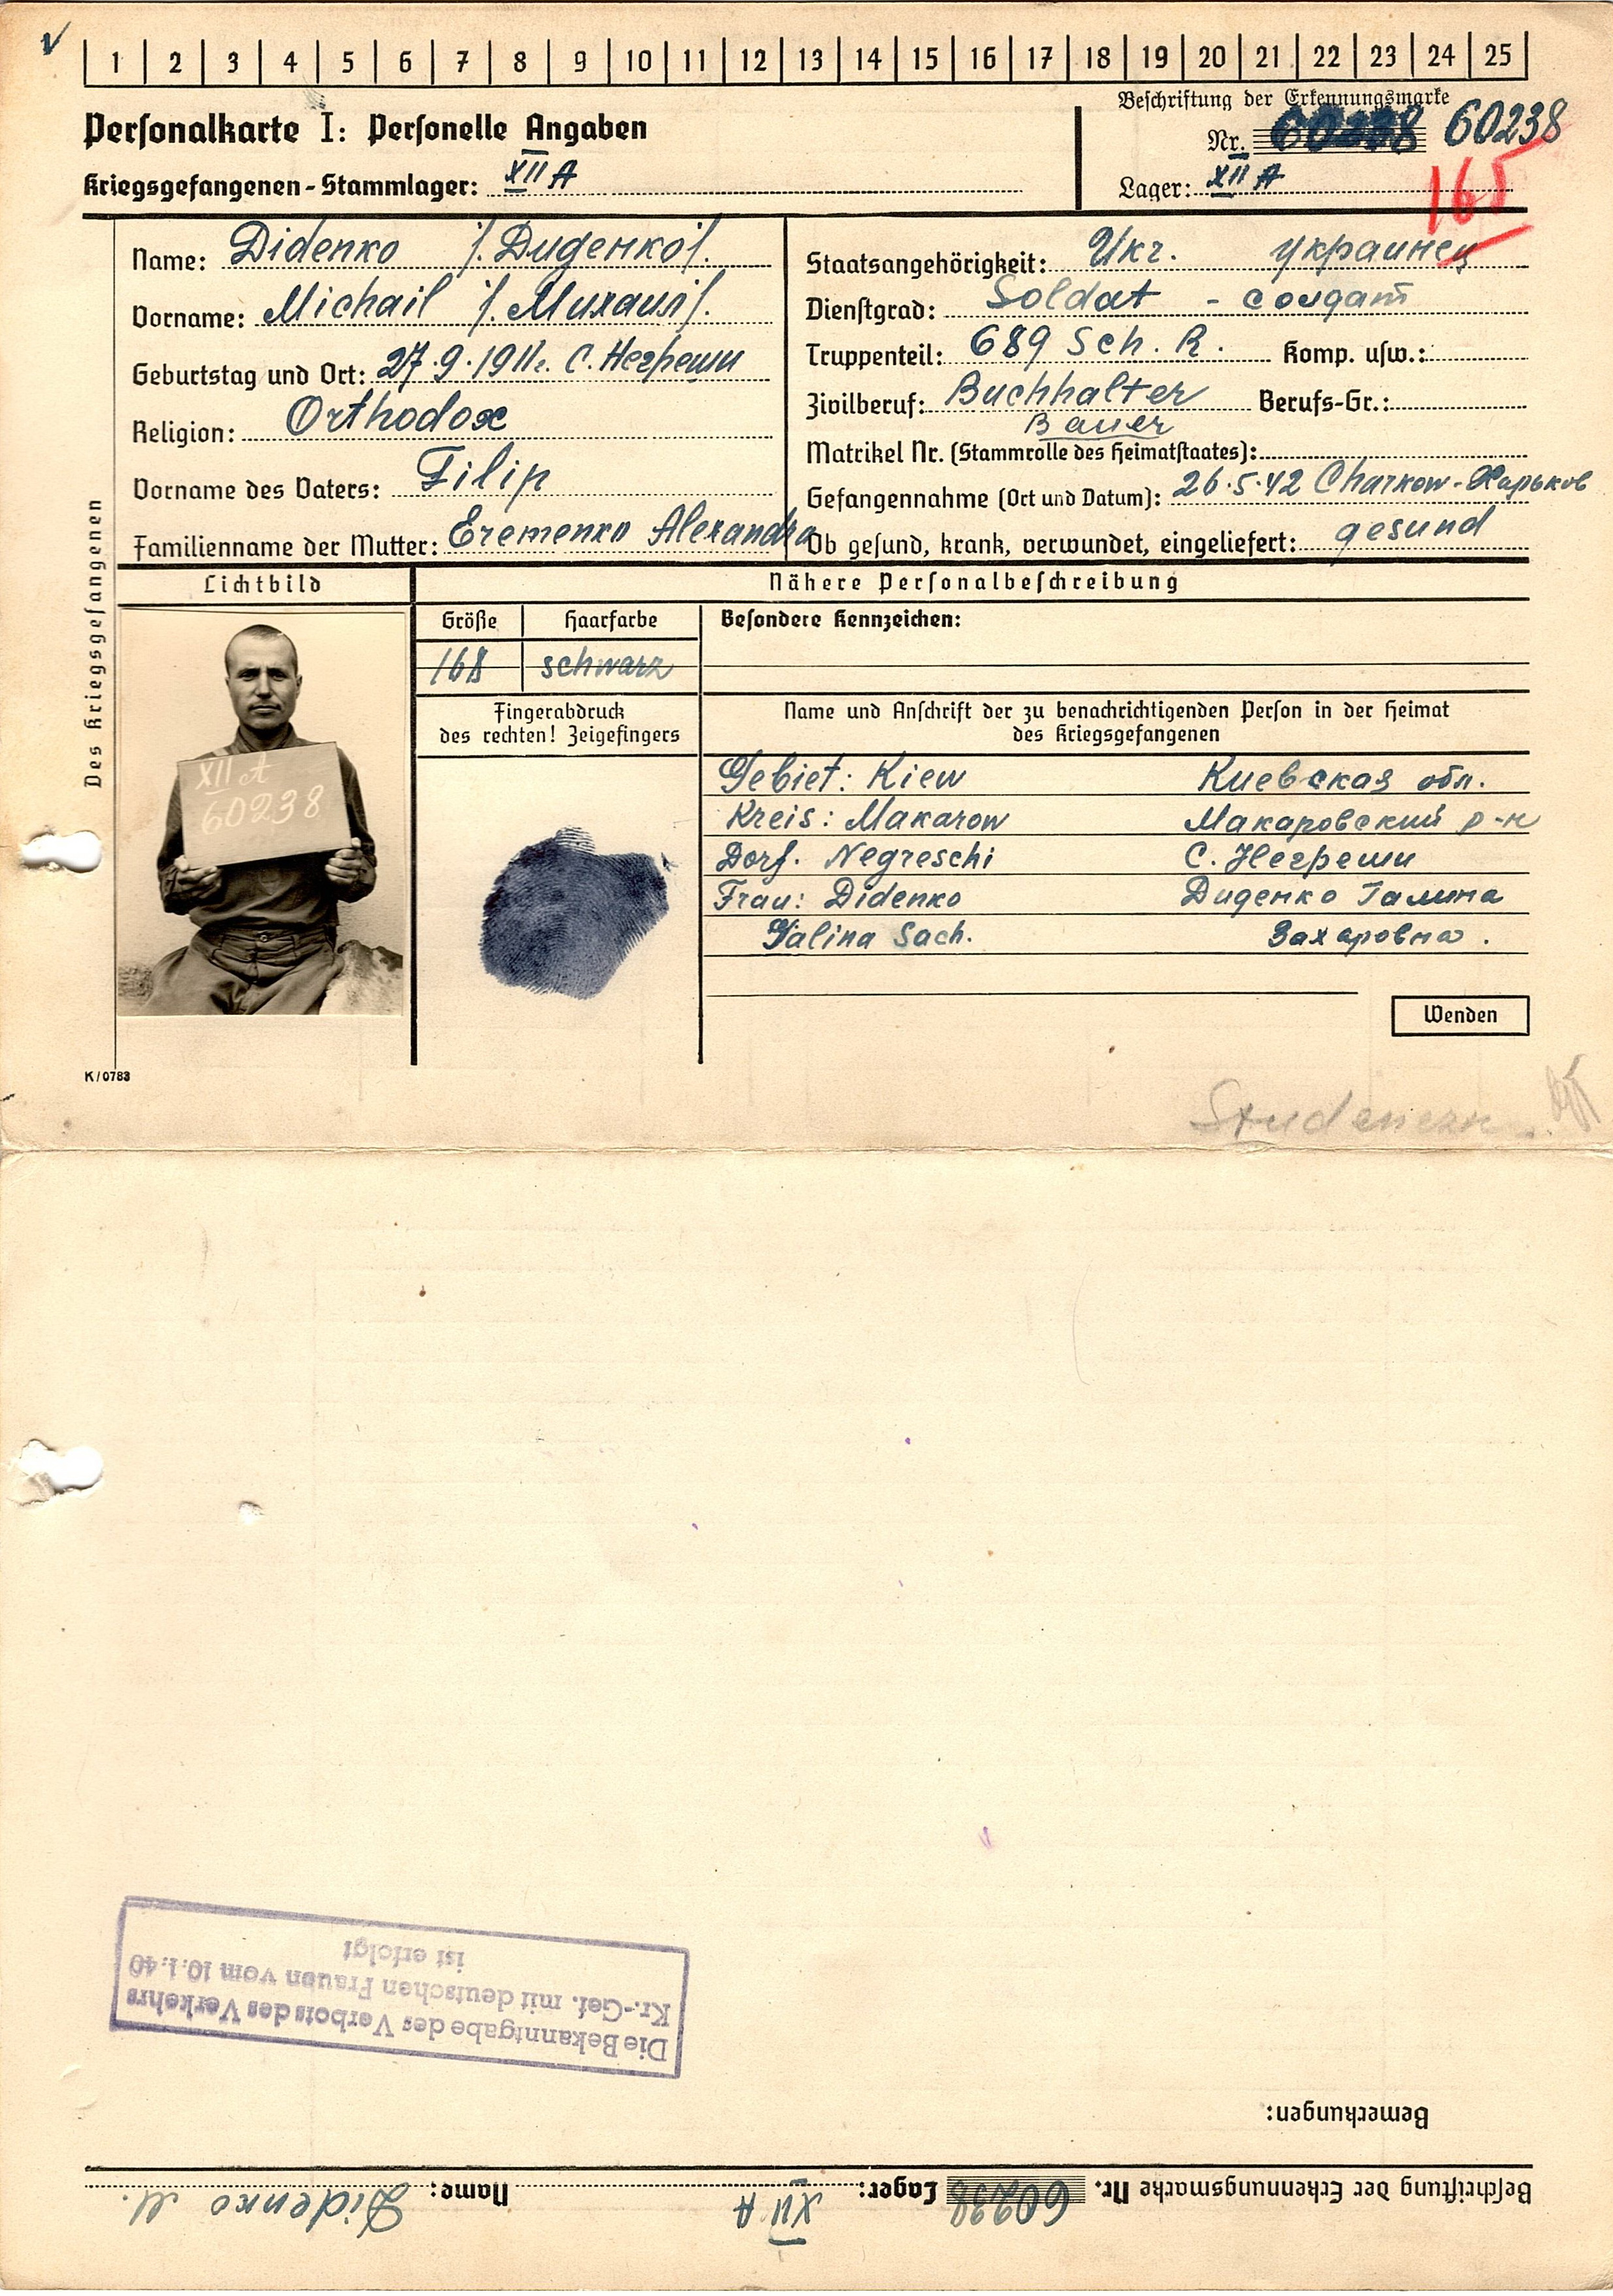 1 2 3 4 5 6 7 8 9 10 11 12 13 14 15 16 17 18 19 20 21 22 23 24 25
Personalkarte I: Personelle Angaben
Kriegsgefangenen-Stammlager: XII A
Beschriftung der Erkennungsmarke
Nr. 60238 60238
Lager: XII A
165
Des Kriegsgefangenen
Name: Didenko /. Диденко/.
Vorname: Michail /. Михаил/.
Geburtstag und Ort: 27.9.1911г. С. Негреши
Religion: Orthodox
Vorname des Vaters: Filip
Familienname der Mutter: Eremenko Alexandra
Staatsangehörigkeit: Ukr. украинец
Dienstgrad: Soldat - солдат
Truppenteil: 689 Sch. R. Komp. usw.:
Zivilberuf: Buchhalter Berufs-Gr.:
Bauer
Matrikel Nr. (Stammrolle des Heimatstaates):
Gefangennahme (Ort und Datum): 26.5.42 Charkow-Харьков
Ob gesund, krank, verwundet, eingeliefert: gesund
Lichtbild
Nähere Personalbeschreibung
Größe Haarfarbe Besondere Kennzeichen:
168 schwarz
Fingerabdruck
des rechten! Zeigefingers
Name und Anschrift der zu benachrichtigenden Person in der Heimat
des Kriegsgefangenen
Gebiet: Kiew Киевская обл.
Kreis: Makarow Макаровский р-н
Dorf. Negreschi С. Негреши
Frau: Didenko Диденко Галина
Galina Sach. Захаровна.
XII A
60238
Wenden
K/0783
Die Bekanntgabe des Verbots des Verkehrs
Kr.-Gef. mit deutschen Frauen vom 10.1.40
ist erfolgt
Bemerkungen:
Beschriftung der Erkennungsmarke Nr. 60238 Lager: XII A Name: Didenko M.